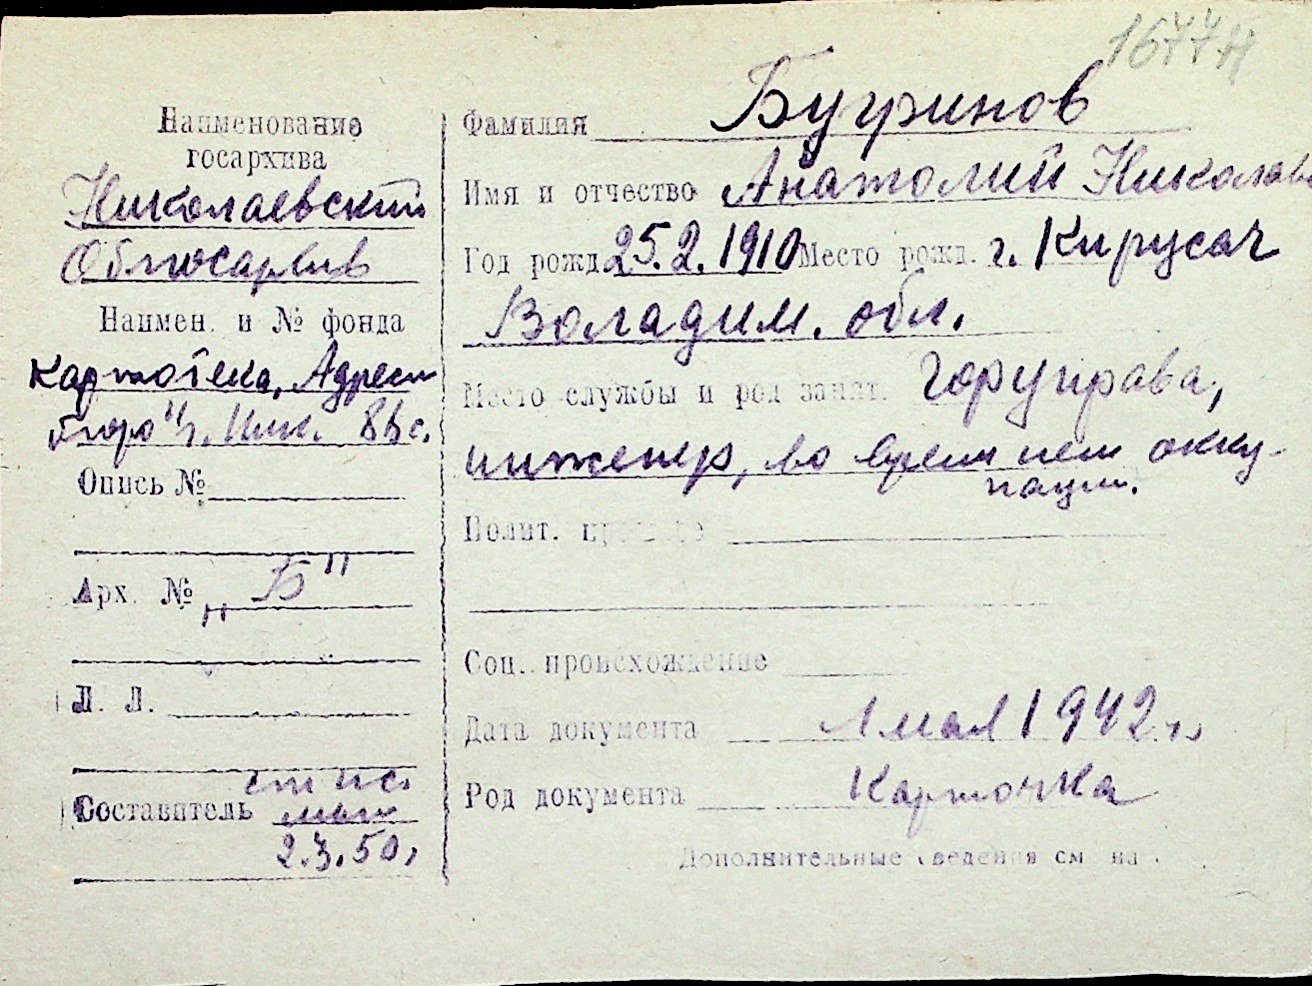 1677н
Наименование
госархива
Николаевский
Облгосархив
Наимен. и № фонда
Картотека, Адресн
бюро" г. Ник.
Опись №
Арх. № „Б"
Л. Л.
Составитель
2.3.50г
Фамилия Бугринов
Имя и отчество Анатолий Николаев
Год рожд. 25.2.1910 Место рожд. г. Кирусач
Воладим. обл.
Место службы и род занят. Горуправа,
инженер, во время нем окку-
пации.
Полит. прошлое
Соц. происхождение
Дата документа 1 мая 1942 г.
Род документа Карточка
Дополнительные сведения см на